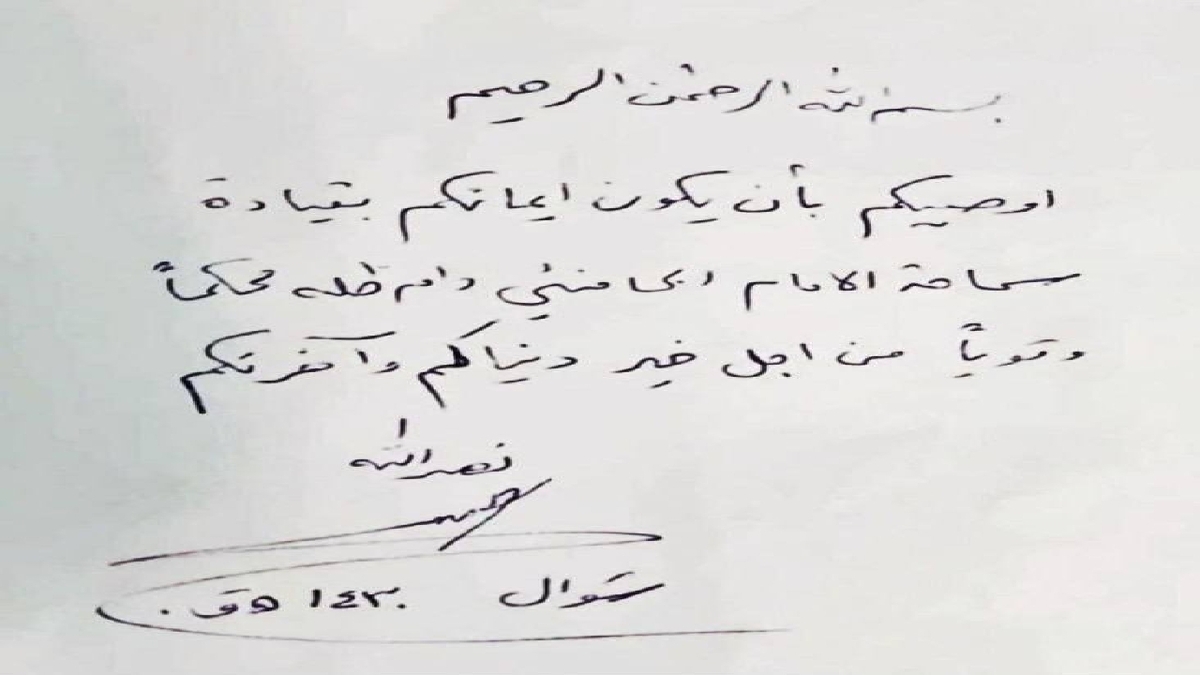 بسم الله الرحمن الرحيم
اوصيكم بأن يكون ايمانكم بقيادة
سماحة الامام الخامنئي دام ظله محكماً
وقوياً من اجل خير دنياكم وآخرتكم
نصرالله
شوال ١٤٣٠ هـ ق.